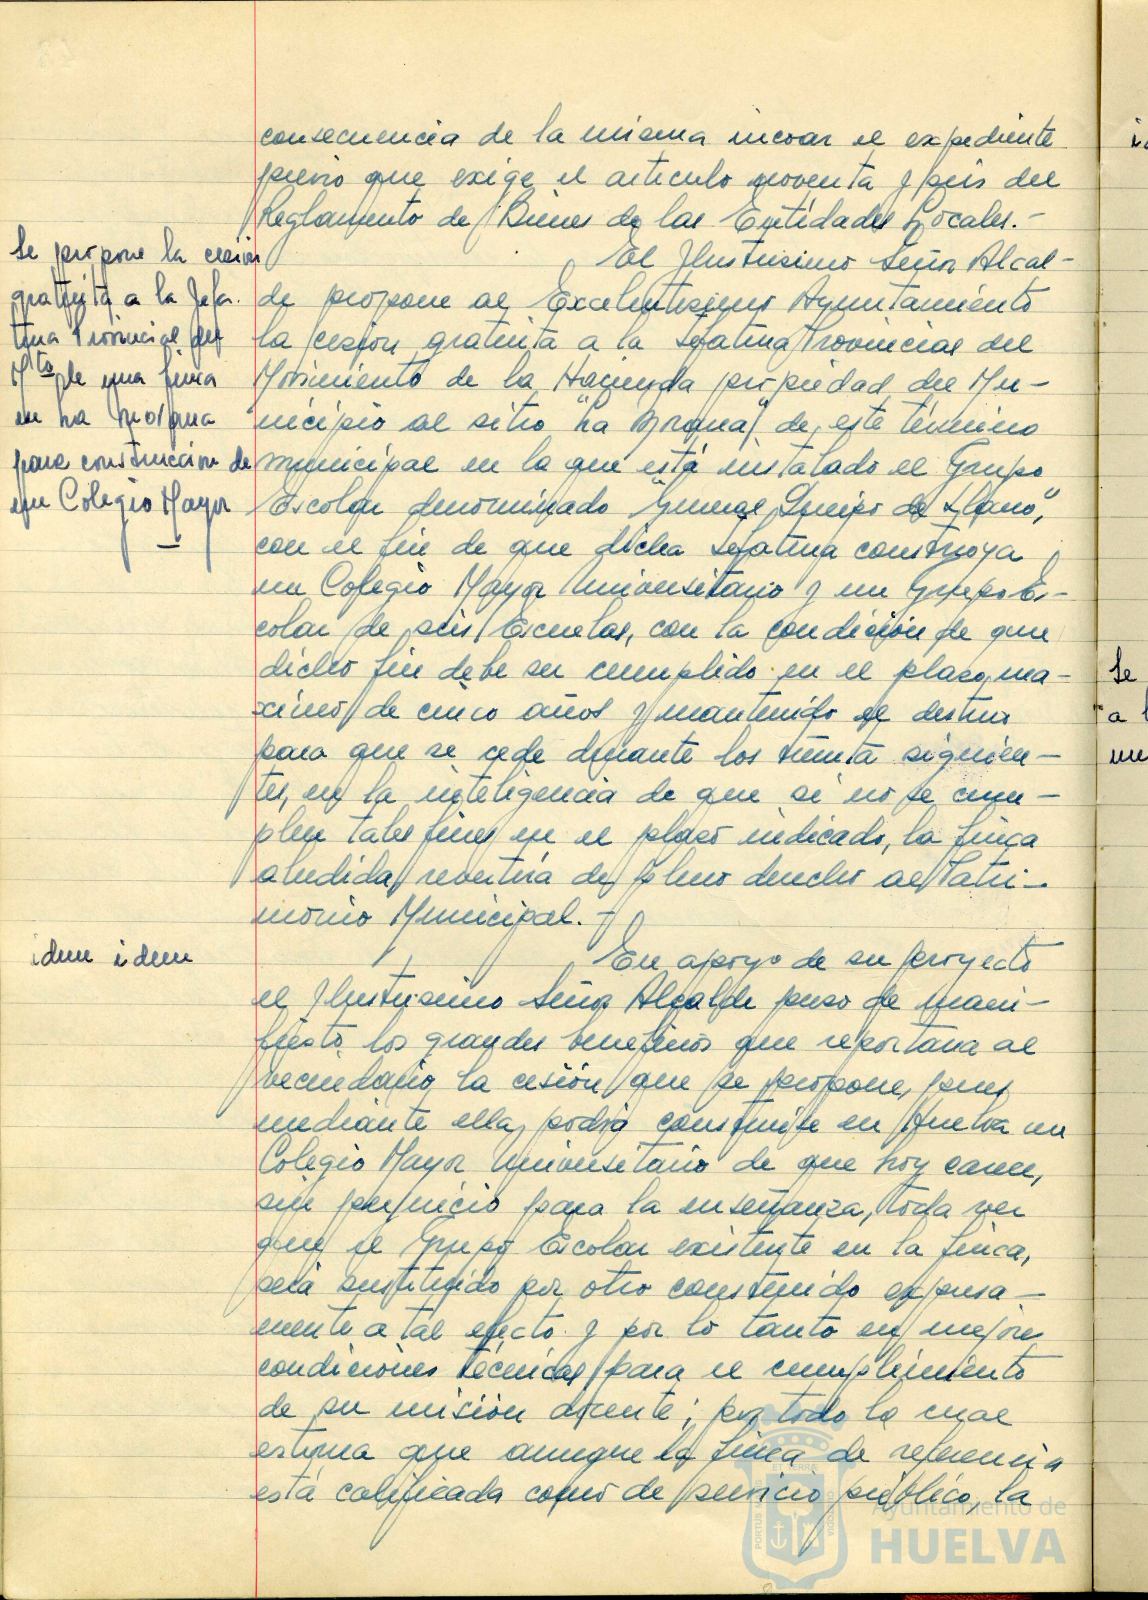 consecuencia de la misma incoar el expediente
previo que exige el artículo noventa y seis del
Reglamento de Bienes de las Entidades Locales.-
Se propone la cesión
gratuita a la Jefa-
tura Provincial del
Mto de una finca
en La Morgua
para construcción de
un Colegio Mayor
El Ilustrísimo Señor Alcal-
de propone al Excelentísimo Ayuntamiento
la cesión gratuita a la Jefatura Provincial del
Movimiento de la Hacienda propiedad del Mu-
nicipio al sitio "La Morgua" de este término
municipal en la que está instalado el Grupo
Escolar denominado "General Queipo de Llano",
con el fin de que dicha Jefatura construya
un Colegio Mayor Universitario y un Grupo Es-
colar de seis Escuelas, con la condición de que
dicho fin debe ser cumplido en el plazo ma-
ximo de cinco años y mantenido el destino
para que se cede durante los treinta siguien-
tes, en la inteligencia de que si no se cum-
plen tales fines en el plazo indicado, la finca
aludida revertirá de pleno derecho al Patri-
monio Municipal.-
idem idem
En apoyo de su proyecto
el Ilustrísimo Señor Alcalde puso de mani-
fiesto los grandes beneficios que reportaría al
vecindario la cesión que se propone, pues
mediante ella, podría construirse en Huelva un
Colegio Mayor Universitario de que hoy carece,
sin perjuicio para la enseñanza, toda vez
que el Grupo Escolar existente en la finca,
será sustituido por otro construido expresa-
mente a tal efecto y por lo tanto en mejores
condiciones técnicas para el cumplimiento
de su misión docente; por todo lo cual
estima que aunque la finca de referencia
está calificada como de servicio público, la
Ayuntamiento de
HUELVA